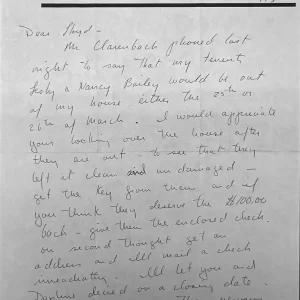 Dear Lloyd -
Mr Clarenbach phoned last
night to say that my tenents
& Nancy Bailey would be out
of my house either the 25th or
26th of March. I would appreciate
your looking over the house after
they are out - to see that they
left it clean and un damaged -
get the key from them and if
you think they deserve the $100.00
back - give them the enclosed check.
on second thought get an
address and I'll mail a check
immediately. I'll let you and
Daphne decide on a closing date.